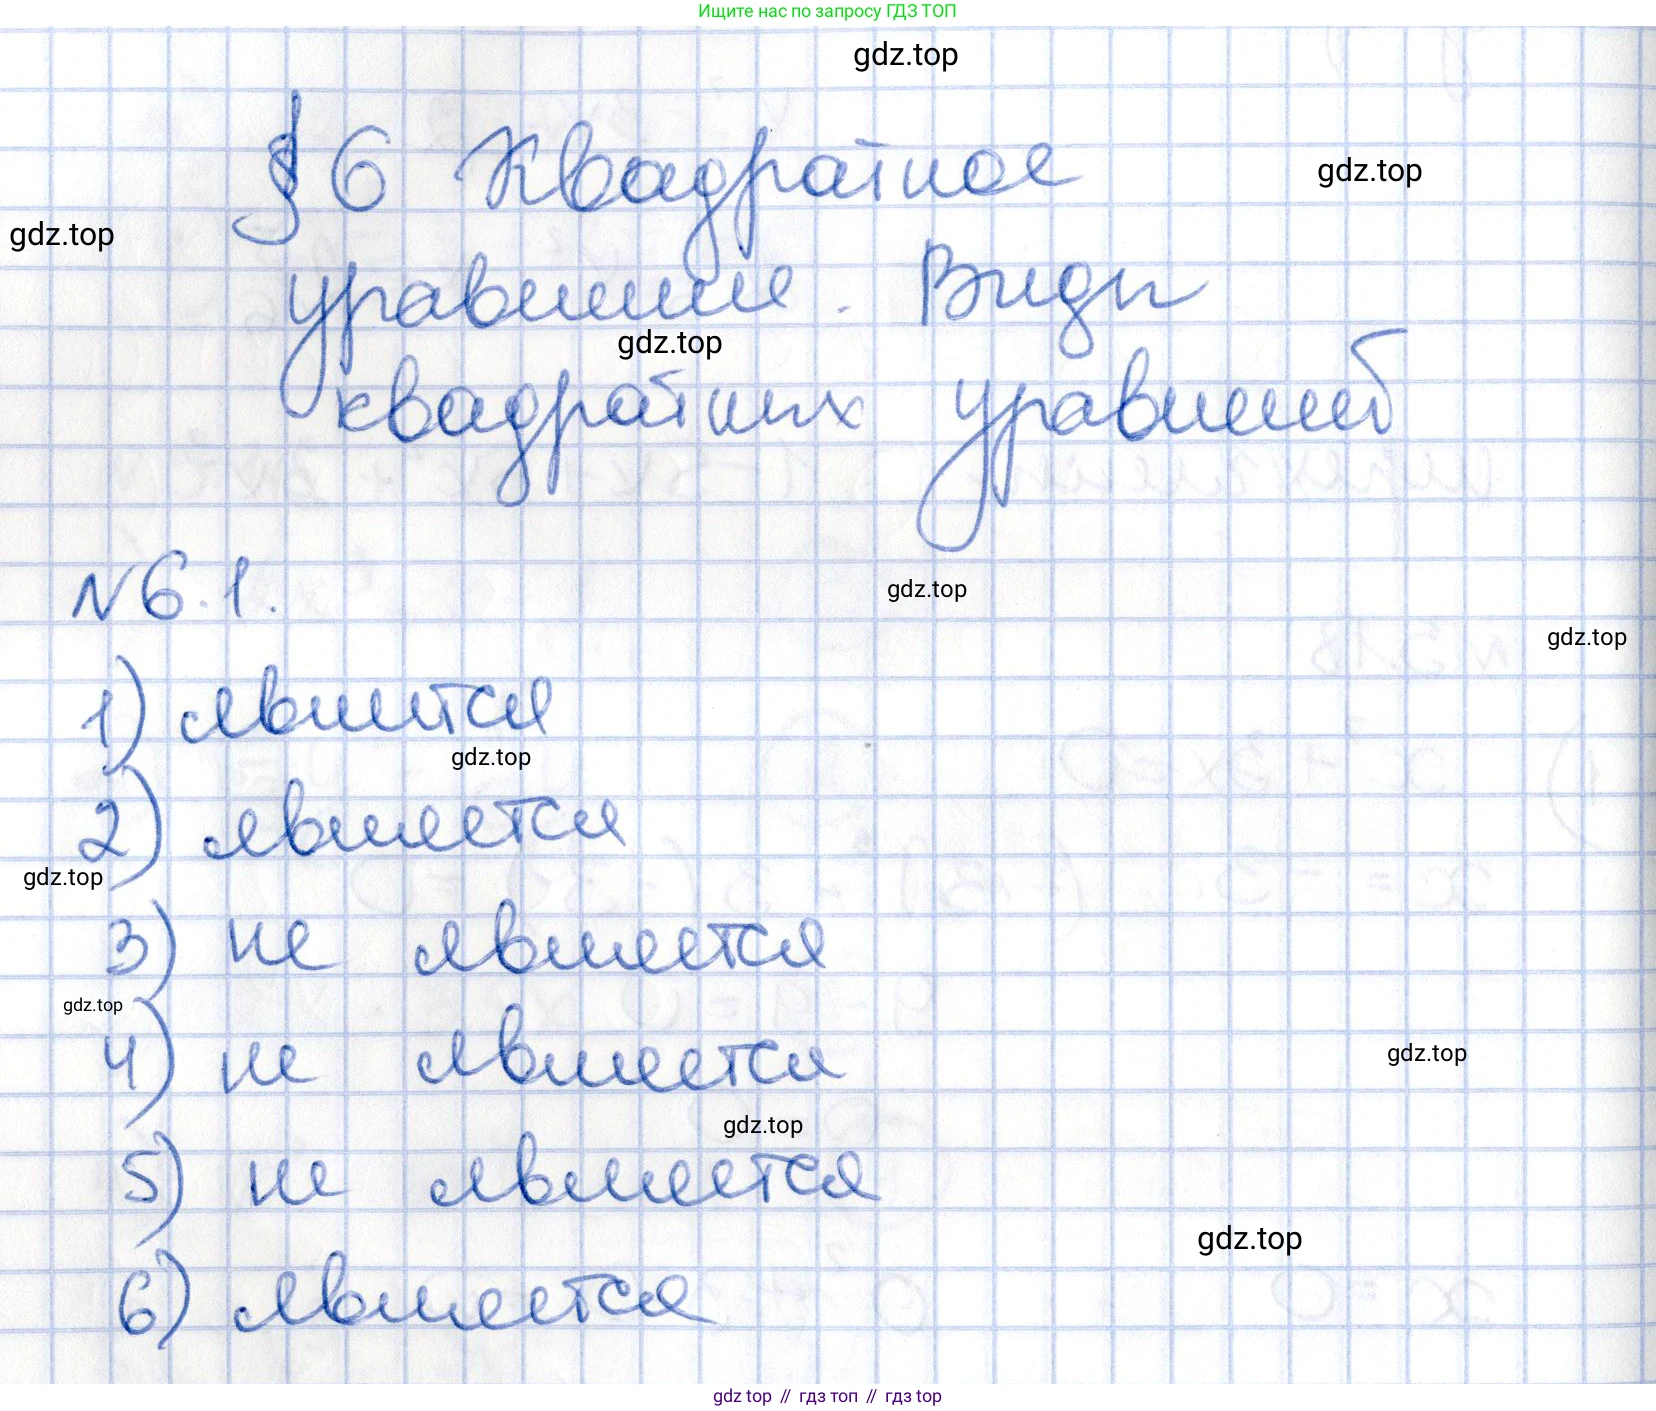 Ищите нас по запросу ГДЗ ТОП
gdz.top
§ 6 Квадратное
gdz.top
gdz.top
уравнение. Виды
gdz.top
квадратных уравнений
№ 6.1.
gdz.top
gdz.top
1) является
gdz.top
2) является
gdz.top
3) не является
gdz.top
4) не является
gdz.top
gdz.top
5) не является
gdz.top
6) является
gdz.top // гдз топ // gdz top